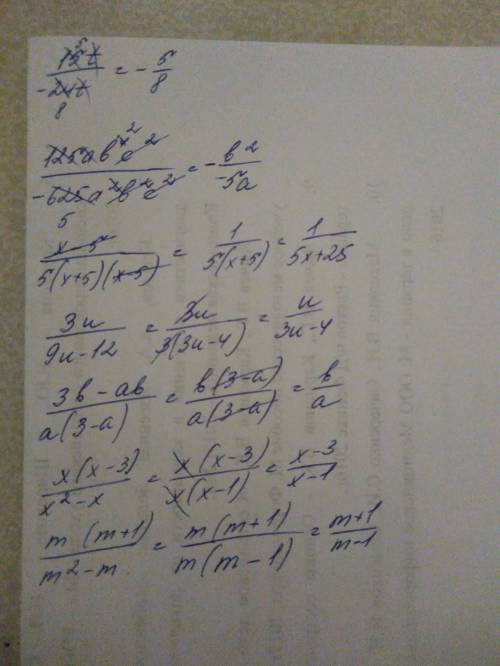 15t^5/-24t_8 = - 5/8
125ab^4c^2 ^2/-625a^2b^2c^2 5 = - b^2/-5a
x-5/5(x+5)(x-5) = 1/5(x+5) = 1/5x+25
3u/9u-12 = 3u/3(3u-4) = u/3u-4
3b-ab/a(3-a) = b(3-a)/a(3-a) = b/a
x(x-3)/x^2-x = x(x-3)/x(x-1) = x-3/x-1
m(m+1)/m^2-m = m(m+1)/m(m-1) = m+1/m-1